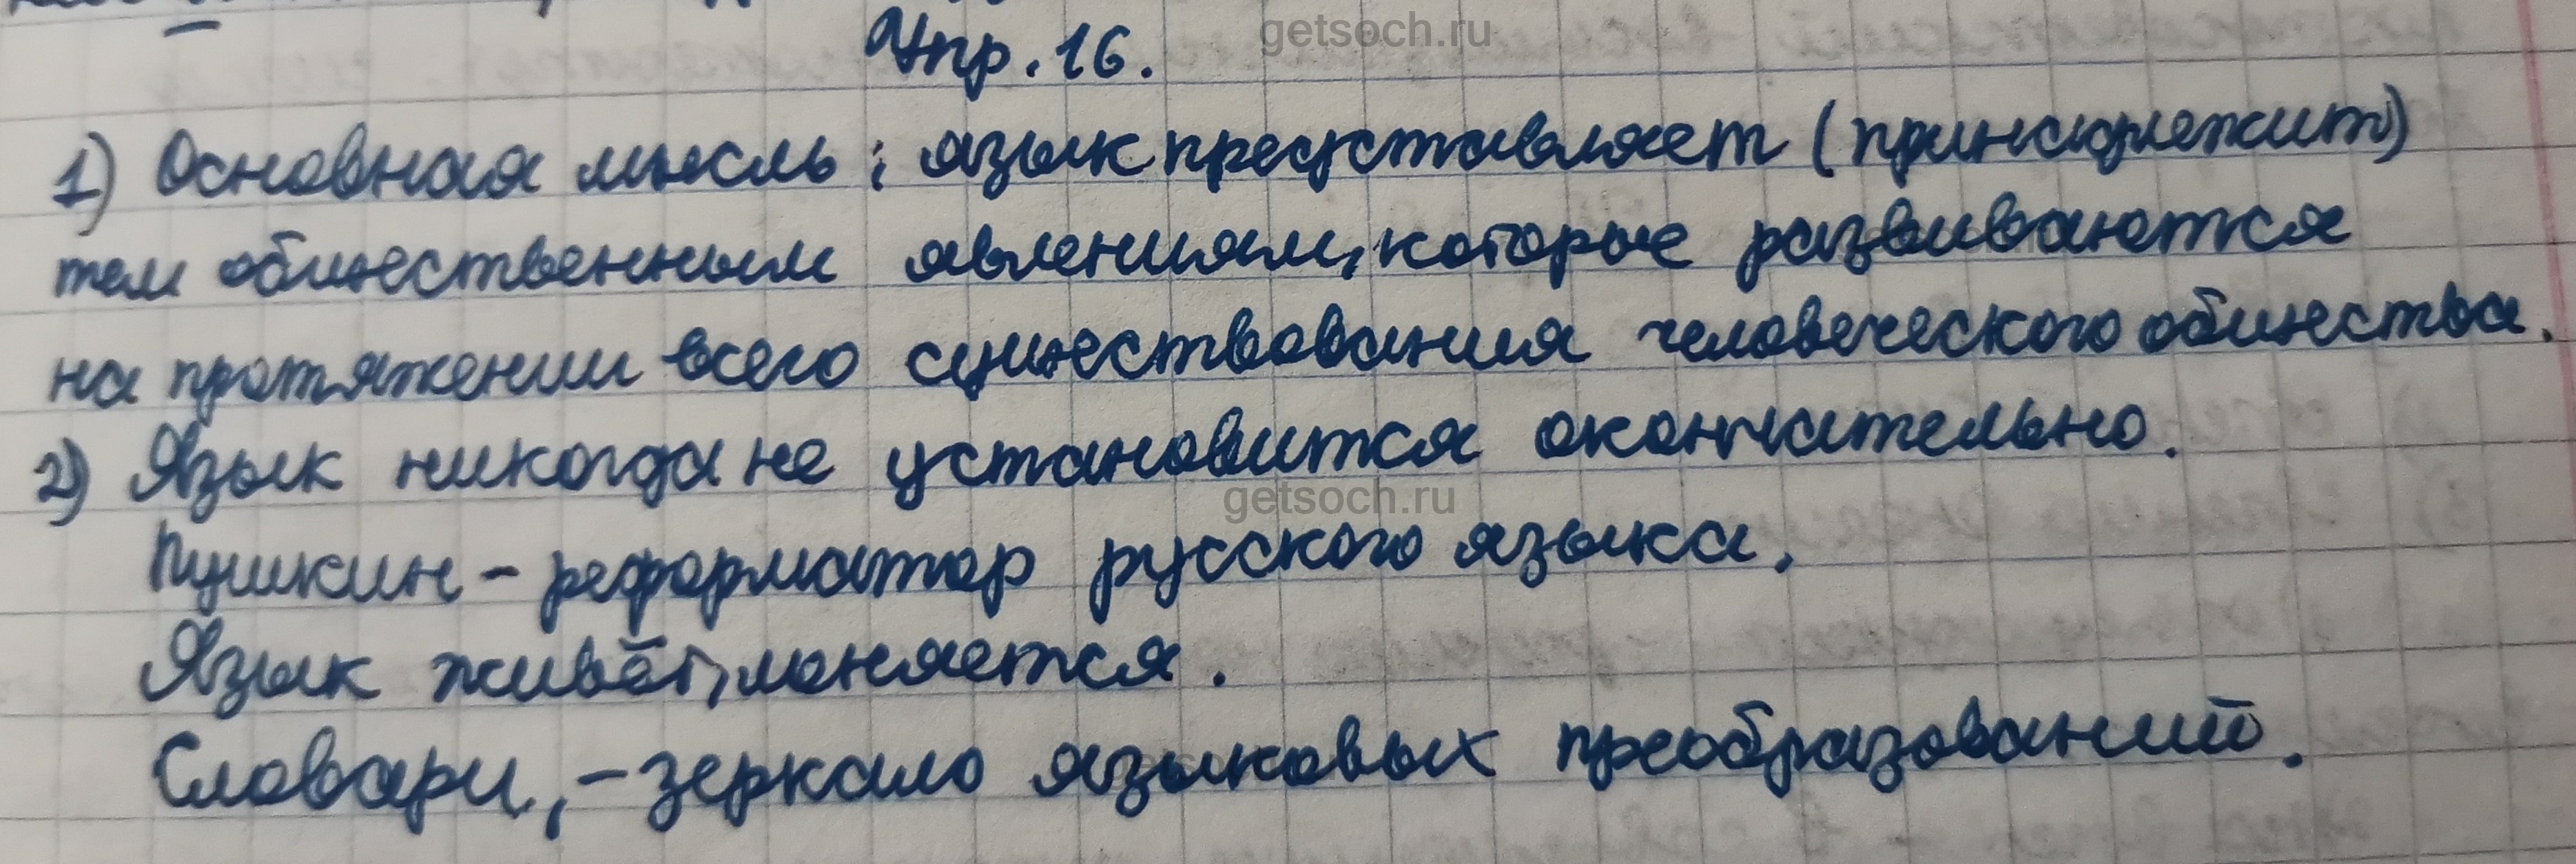 Упр. 16.
getsoch.ru
1) Основная мысль: язык представляет (принадлежит)
тем общественным явлениям, которые развиваются
на протяжении всего существования человеческого общества.
2) Язык никогда не установится окончательно.
getsoch.ru
Пушкин – реформатор русского языка.
Язык живёт, меняется.
Словари, – зеркало языковых преобразований.